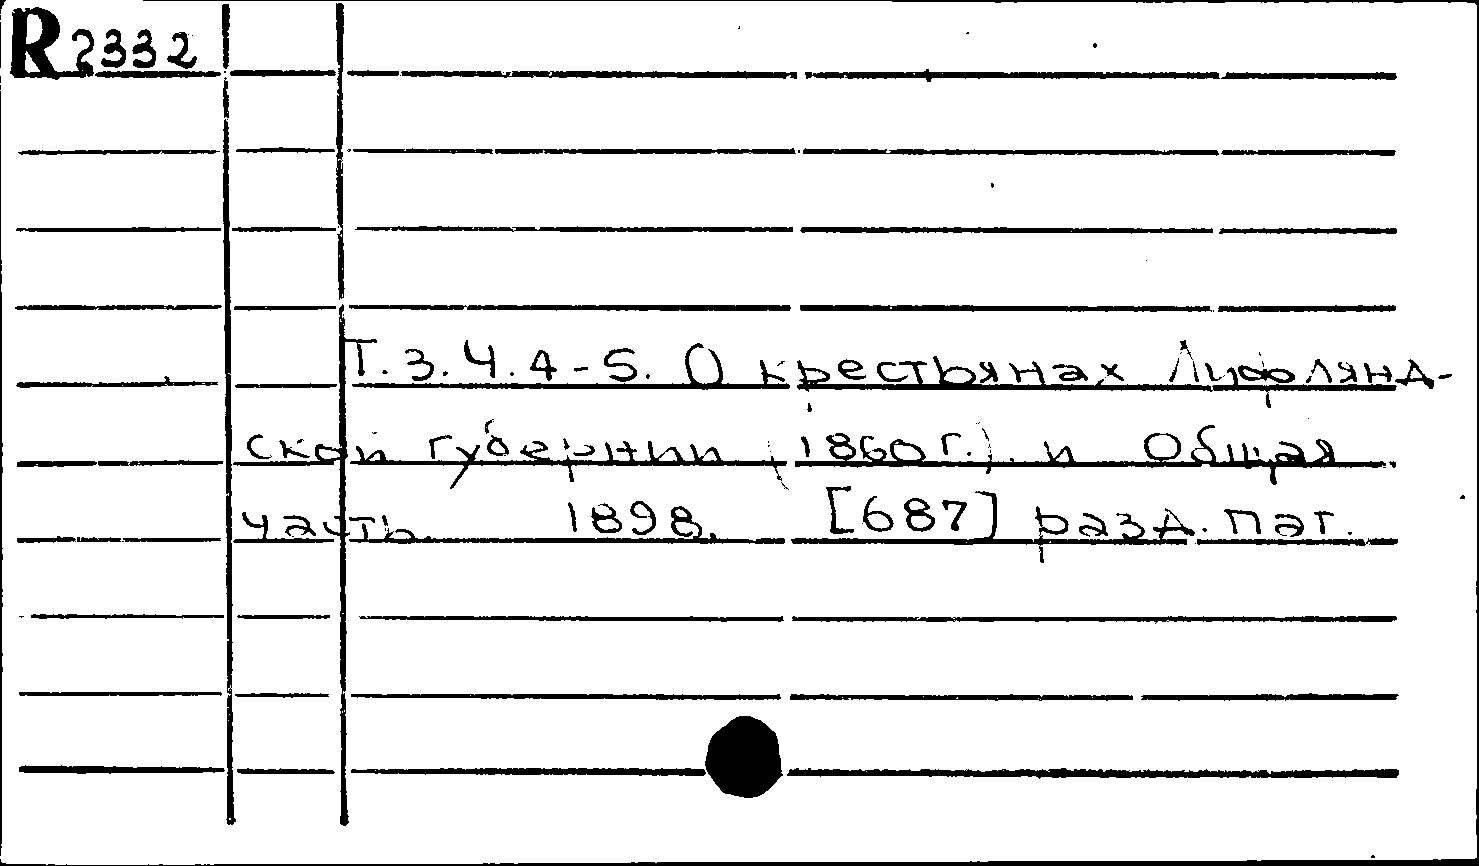 R 2332
Т.3.Ч.4-5. О крестьянах Лифлянд-
ской губернии (1860г.). и Общая
часть. 1898. [687] разд. паг.